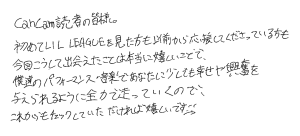 CanCam読者の皆様。
初めてIL LEAGUEを見た方も以前から応援してくださっている方も
今回こうして出会えたことは本当に嬉しいことで、
僕達のパフォーマンス・音楽であなたに少しでも幸せや興奮を
与えられるように全力で走っていくので、
これからもチェックしていただければ嬉しいです